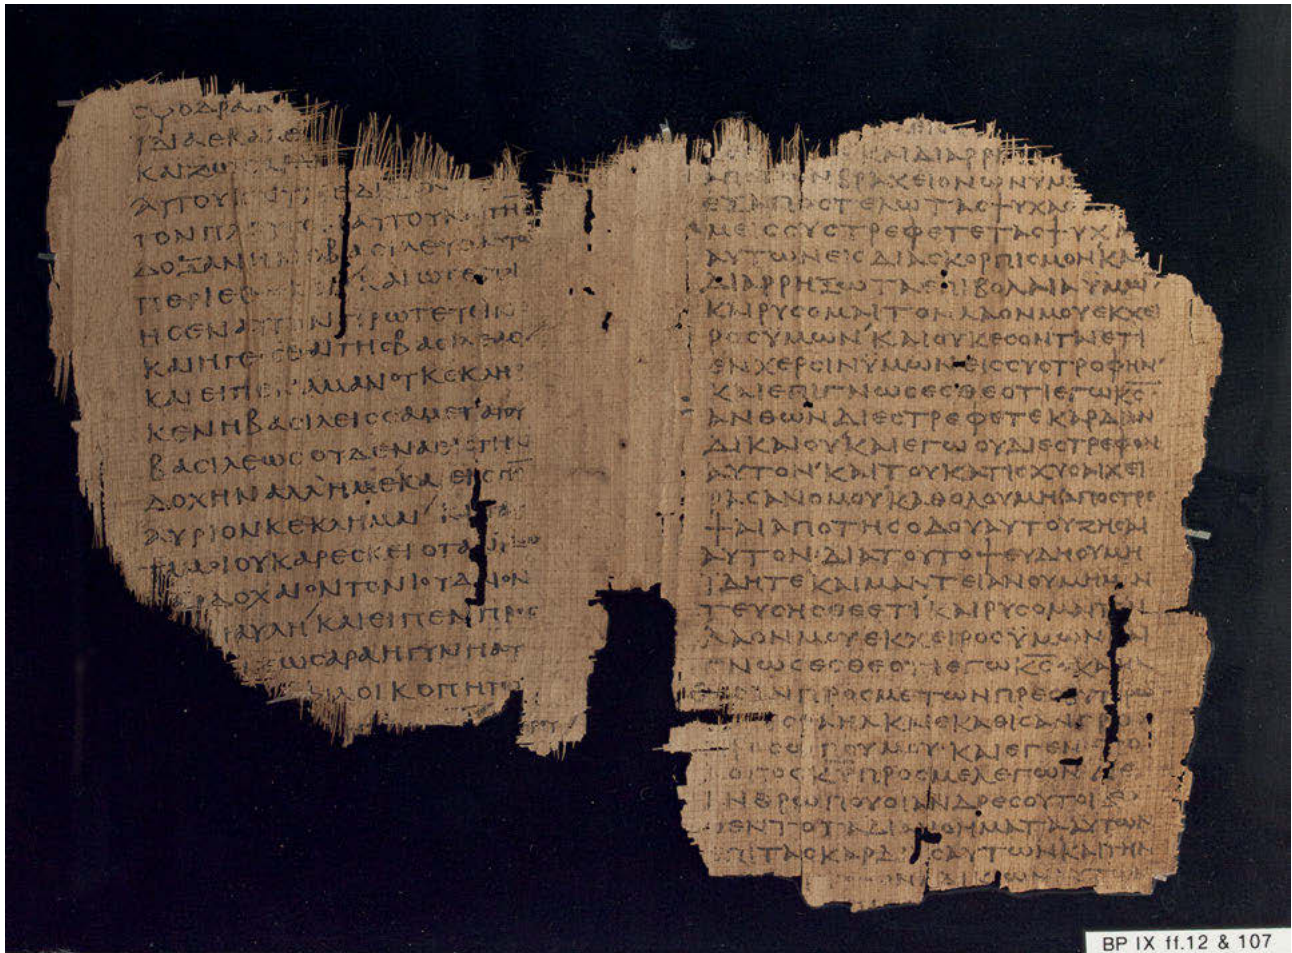 ϹΦΟΔΡΑ
ΙΔΙΑΕΚΑΛΕ
ΚΑΙΖΩϹΑΡΑΝ
ΑΥΤΟΥΚΑΙΥΠΕΔΙ
ΤΟΝΠΛΟΥΤΟΝΑΥΤΟΥΚΑΙΤΗ̅
ΔΟΞΑΝΗΝΟΒΑϹΙΛΕΥϹΑΥΤΩ
ΠΕΡΙΕΘΗΚΕΝΚΑΙΩϹΕΠΟΙ
ΗϹΕΝΑΥΤΟΝΠΡΩΤΕΥΕΙΝ
ΚΑΙΗΓΕΙϹΘΑΙΤΗϹΒΑϹΙΛΕΙΑϹ
ΚΑΙΕΙΠΕΝΑΜΑΝΟΥΚΕΚΛΗ
ΚΕΝΗΒΑϹΙΛΕΙϹϹΑΜΕΤΑΤΟΥ
ΒΑϹΙΛΕΩϹΟΥΔΕΝΑΕΙϹΤΗΝ
ΔΟΧΗΝΑΛΛΗΜΕΚΑΙΕΙϹΤΗ̅
ΑΥΡΙΟΝΚΕΚΛΗΜΑΙΚΑΙΤΑΥ
ΤΑΜΟΙΟΥΚΑΡΕϹΚΕΙΟΤΑΝΙΔΩ
ΑΡΔΟΧΑΙΟΝΤΟΝΙΟΥΔΑΙΟΝ
ΗΑΥΛΗΚΑΙΕΙΠΕΝΠΡΟϹ
ΖΩϹΑΡΑΗΓΥΝΗΑΥ
ΙΛΟΙΚΟΠΗΤΩ
ΚΑΙΔΙΑΡΡΗ
ΑΠΟΤΩΝΒΡΑΧΕΙΟΝΩΝΥΜ
ΕΞΑΠΟϹΤΕΛΩΤΑϹΨΥΧΑϹ
ΜΕΙϹϹΥϹΤΡΕΦΕΤΕΤΑϹΨΥΧΑ
ΑΥΤΩΝΕΙϹΔΙΑϹΚΟΡΠΙϹΜΟΝΚΑΙ
ΔΙΑΡΡΗΞΩΤΑΕΠΙΒΟΛΑΙΑΥΜΩ
ΚΑΙΡΥϹΟΜΑΙΤΟΝΛΑΟΝΜΟΥΕΚΧΕΙ
ΡΟϹΥΜΩΝ'ΚΑΙΟΥΚΕϹΟΝΤΑΙΕΤΙ
ΕΝΧΕΡϹΙΝΥΜΩΝΕΙϹϹΥϹΤΡΟΦΗΝ'
ΚΑΙΕΠΙΓΝΩϹΕϹΘΕΟΤΙΕΓΩΚ̅Ϲ̅
ΑΝΘΩΝΔΙΕϹΤΡΕΦΕΤΕΚΑΡΔΙΑΝ
ΔΙΚΑΙΟΥΚΑΙΕΓΩΟΥΔΙΕϹΤΡΕΦΟΝ
ΑΥΤΟΝ'ΚΑΙΤΟΥΚΑΤΙϹΧΥϹΑΙΧΕΙ
ΡΑϹΑΝΟΜΟΥΚΑΘΟΛΟΥΜΗΑΠΟϹΤΡΕ
ΨΑΙΑΠΟΤΗϹΟΔΟΥΑΥΤΟΥΖΗϹΑΙ
ΑΥΤΟΝ·ΔΙΑΤΟΥΤΟΨΕΥΔΗΟΥΜΗ
ΙΔΗΤΕΚΑΙΜΑΝΤΕΙΑΝΟΥΜΗΜΑΝ
ΤΕΥϹΗϹΘΕΕΤΙ'ΚΑΙΡΥϹΟΜΑΙΤΟΝ
ΛΑΟΝΜΟΥΕΚΧΕΙΡΟϹΥΜΩΝΚΑΙ
ΓΝΩϹΕϹΘΕΟΤΙΕΓΩΚ̅Ϲ̅·ΚΑΙΗΛ
ΘΟϹΑΝΠΡΟϹΜΕΤΩΝΠΡΕϹΒΥΤΕΡΩ
ΤΟΥΙΗΛΚΑΙΕΚΑΘΙϹΑΝΠΡΟ
ΠΡΟϹΩΠΟΥΜΟΥ·ΚΑΙΕΓΕΝΕΤΟ
ΛΟΓΟϹΚ̅Υ̅ΠΡΟϹΜΕΛΕΓΩΝ
ΑΝΘΡΩΠΟΥΟΙΑΝΔΡΕϹΟΥΤΟΙ
ΘΕΝΤΟΤΑΔΙΑΝΟΗΜΑΤΑΑΥΤΩΝ
ΕΠΙΤΑϹΚΑΡΔΙΑϹΑΥΤΩΝΚΑΙΤΗΝ
BP IX ff.12 & 107